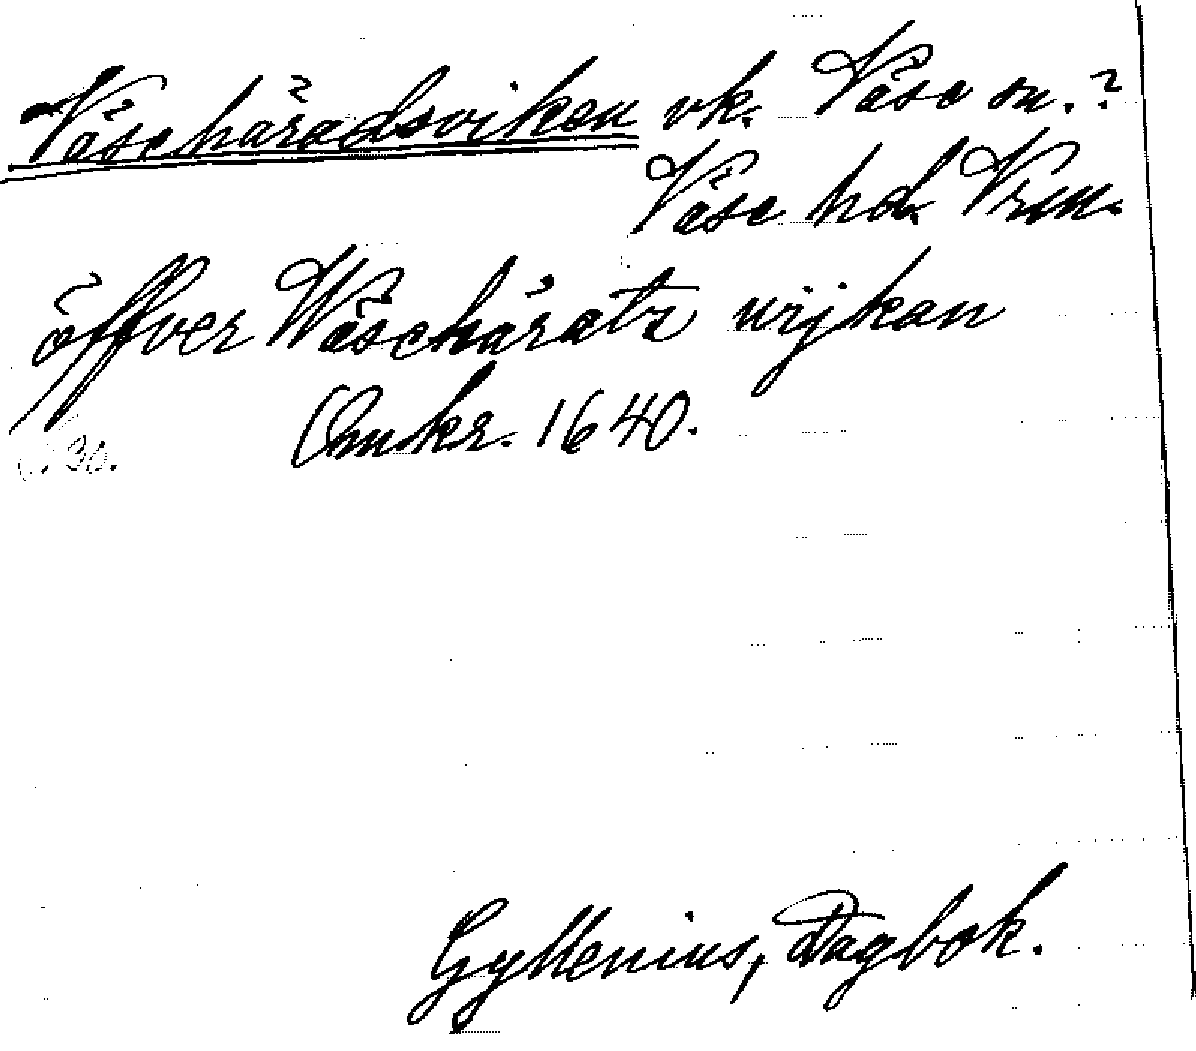 Väsehäradsviken vk. Väse sn.?
Väse hd. Vrm.
öffver Wäsehäratz wijken
Omkr. 1640.
S. 30.
Gyllenius, Dagbok.